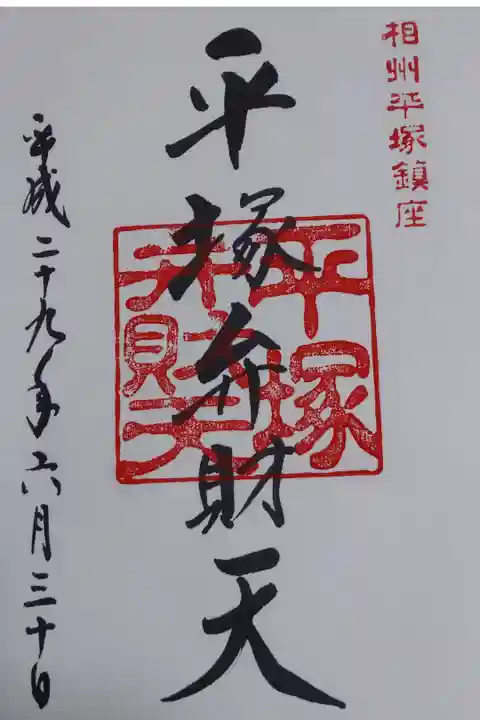 相州平塚鎮座
平塚弁財天
平塚
弁財天
平成二十九年六月三十日